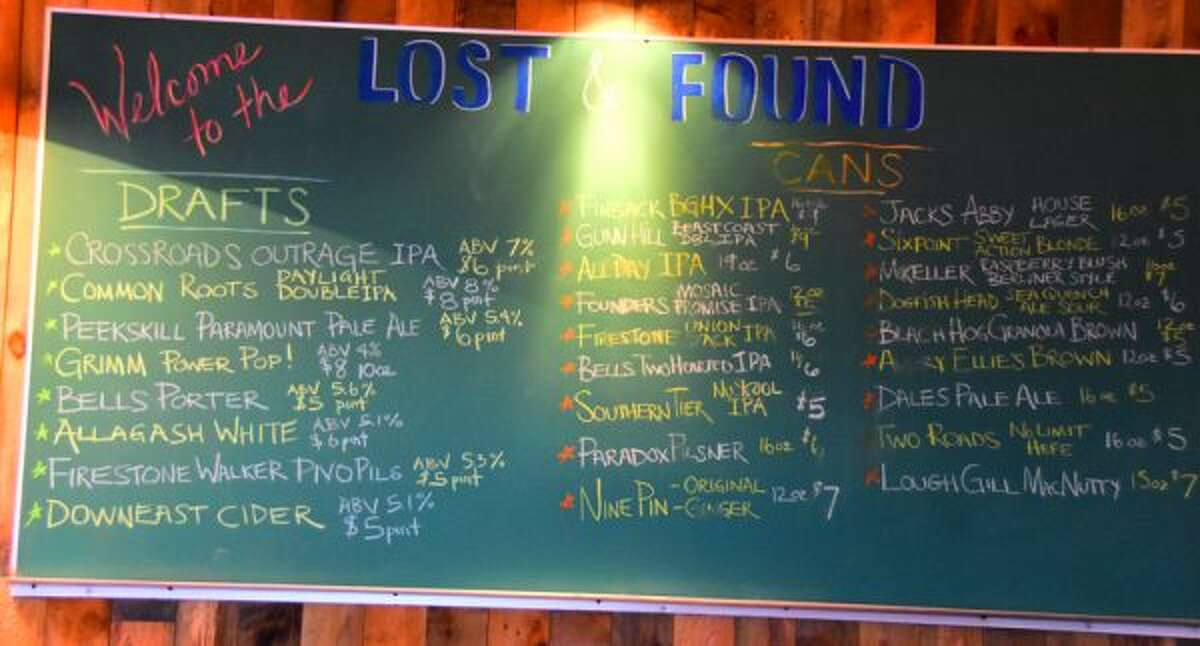 Welcome
to the
LOST & FOUND
DRAFTS
CROSSROADS OUTRAGE IPA ABV 7%
$6 pint
COMMON ROOTS DAYLIGHT DOUBLE IPA ABV 8%
$8 pint
PEEKSKILL PARAMOUNT PALE ALE ABV 5.4%
$6 pint
GRIMM POWER POP! ABV 4%
$8 10oz
BELLS PORTER ABV 5.6%
$5 pint
ALLAGASH WHITE ABV 5.1%
$6 pint
FIRESTONE WALKER PIVO PILS ABV 5.3%
$5 pint
DOWNEAST CIDER ABV 5.1%
$5 pint
CANS
FINBACK BGHX IPA
GUNN HILL EAST COAST
DBL IPA $9
ALL DAY IPA 19oz $6
FOUNDERS MOSAIC
PROMISE IPA 12oz
FIRESTONE UNION
JACK IPA $6
BELLS TWO HEARTED IPA 6
SOUTHERN TIER
IPA $5
PARADOX PILSNER 16oz $6
NINE PIN - ORIGINAL
- GINGER 12oz $7
JACKS ABBY HOUSE
LAGER 16oz $5
SIXPOINT SWEET
ACTION BLONDE 12oz $5
MIKELLER RASPBERRY BLUSH
BERLINER STYLE $7
DOGFISH HEAD SEAQUENCH
ALE SOUR 12oz $6
BLACK HOG GRANOLA BROWN $5
ELLIES BROWN 12oz $5
DALES PALE ALE 16oz $5
TWO ROADS NO LIMIT
HEFE 16oz $5
LOUGH GILL MACNUTTY 15oz $7